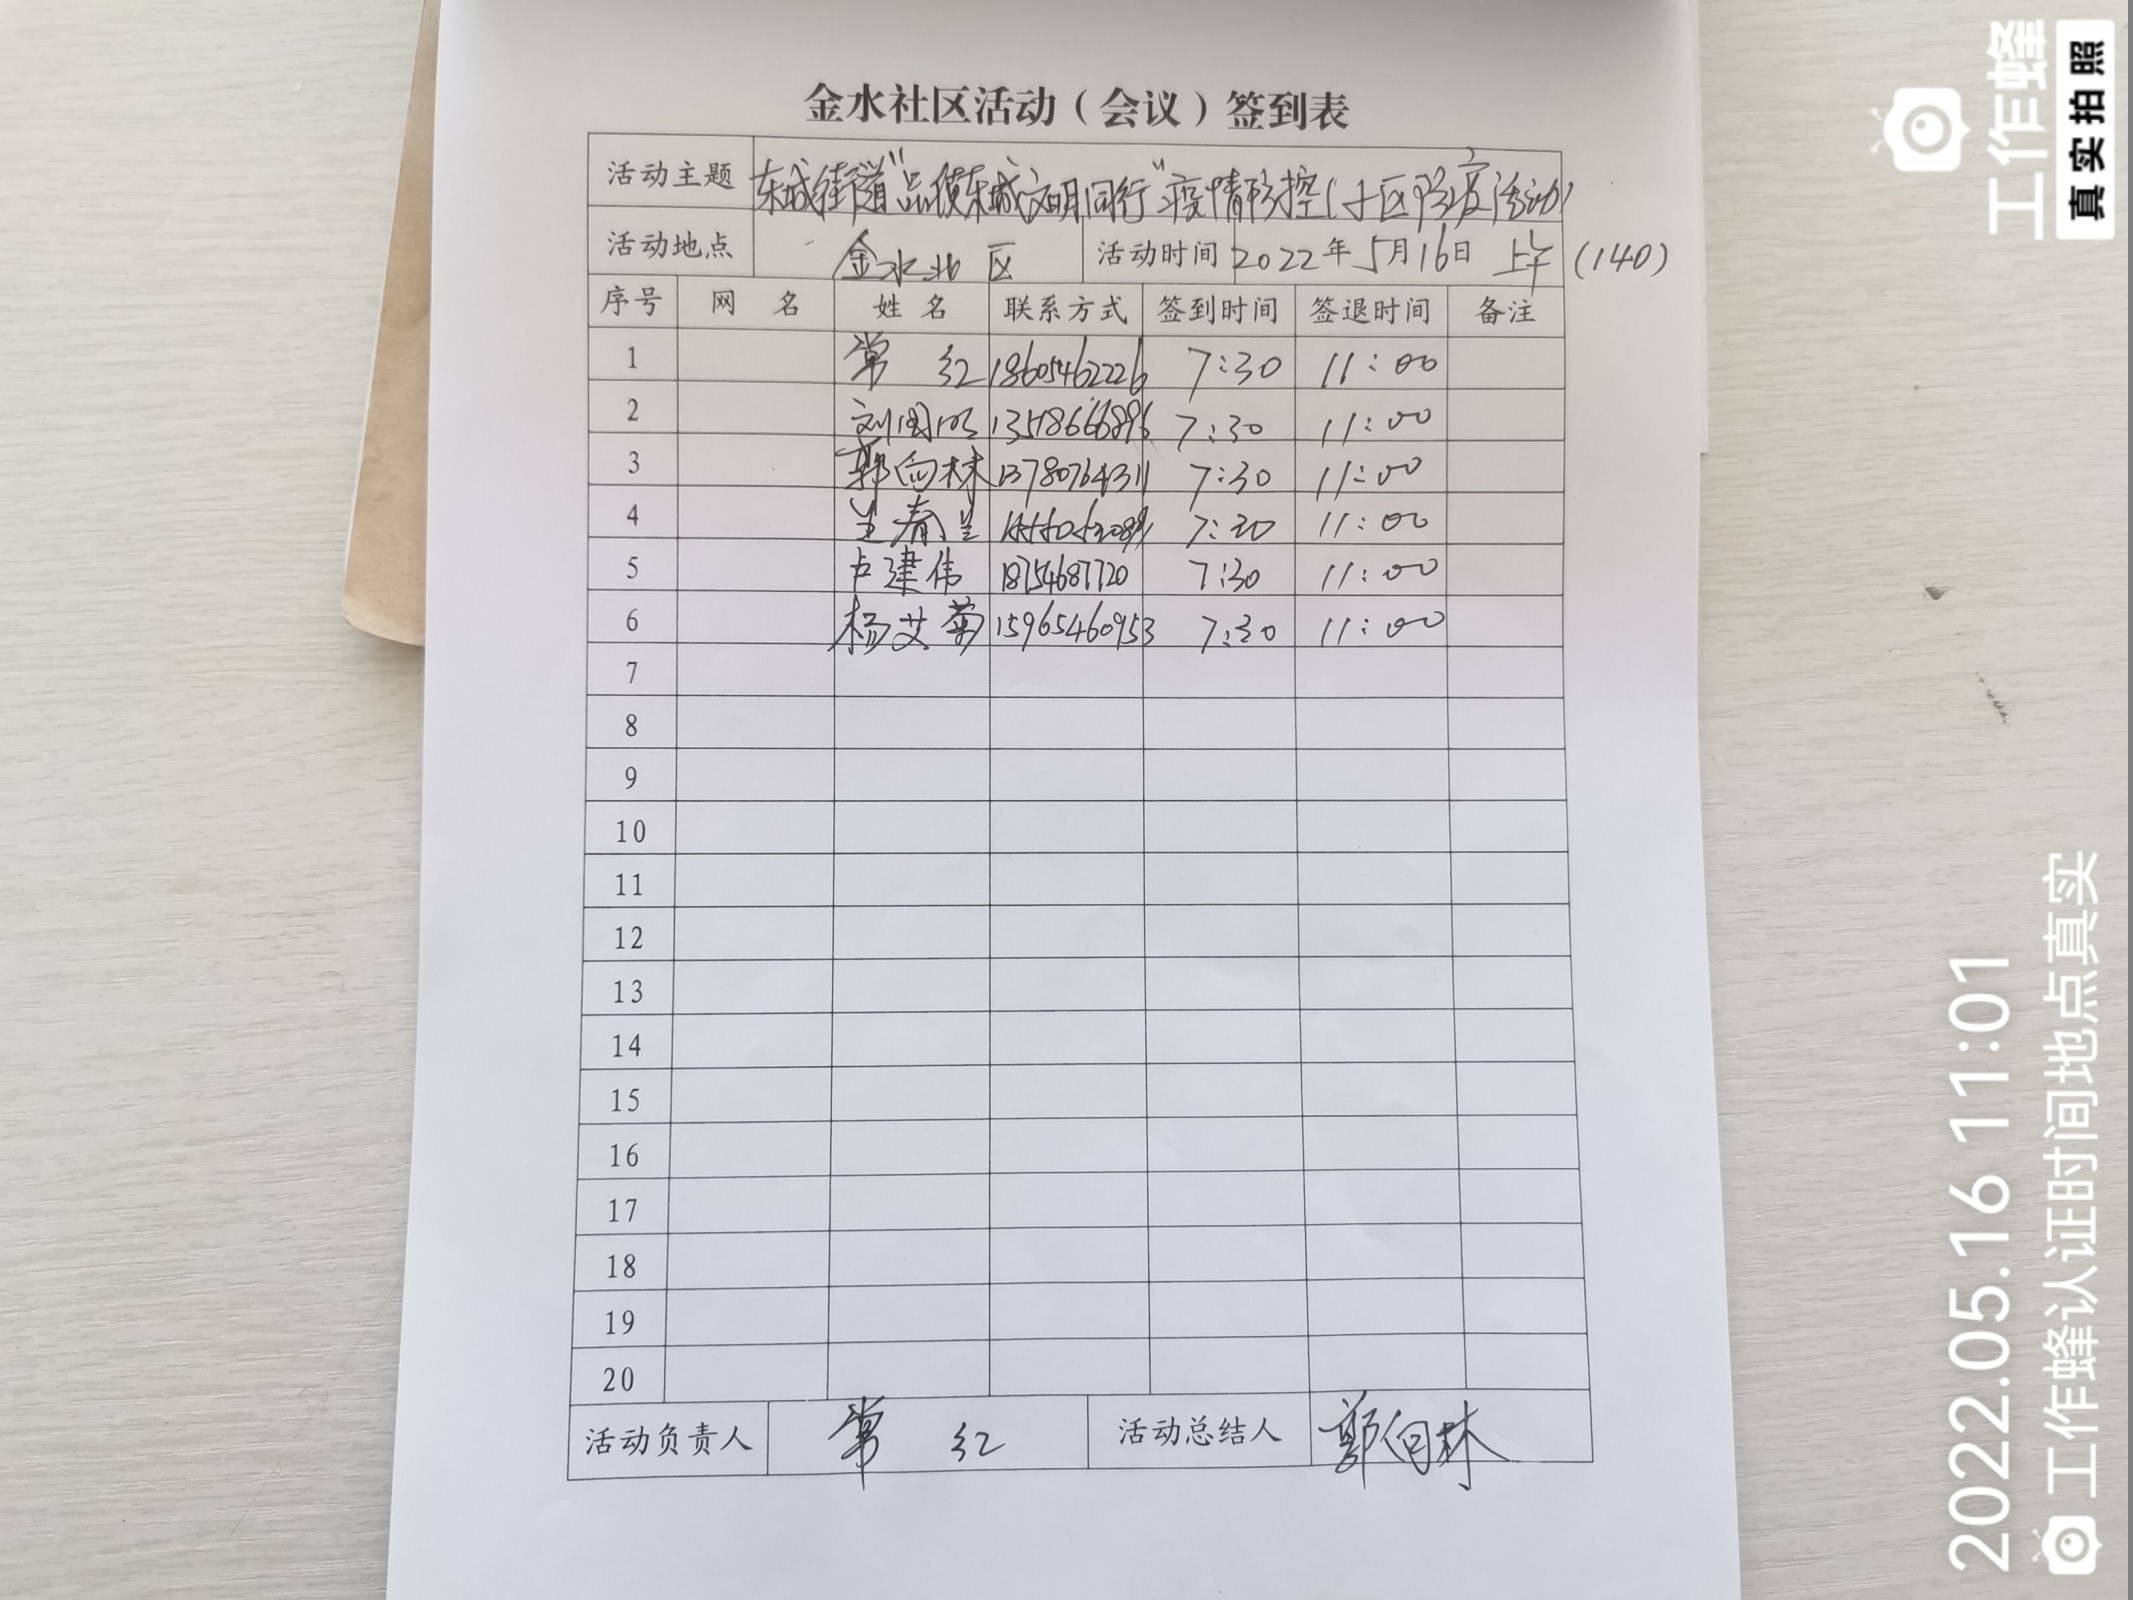 金水社区活动（会议）签到表
活动主题 东城街道“品质东城文明同行”疫情防控(小区防疫活动)
活动地点 金水北区 活动时间 2022年5月16日 上午 (140)
序号 网 名 姓 名 联系方式 签到时间 签退时间 备注
1 常 红 18605462226 7:30 11:00
2 刘国明 7:30 11:00
3 郭向林 13780764311 7:30 11:00
4 7:30 11:00
5 卢建伟 18754687720 7:30 11:00
6 杨艾菊 15965460953 7:30 11:00
7
8
9
10
11
12
13
14
15
16
17
18
19
20
活动负责人 常 红 活动总结人 郭向林
工作蜂
真实拍照
2022.05.16 11:01
工作蜂认证时间地点真实